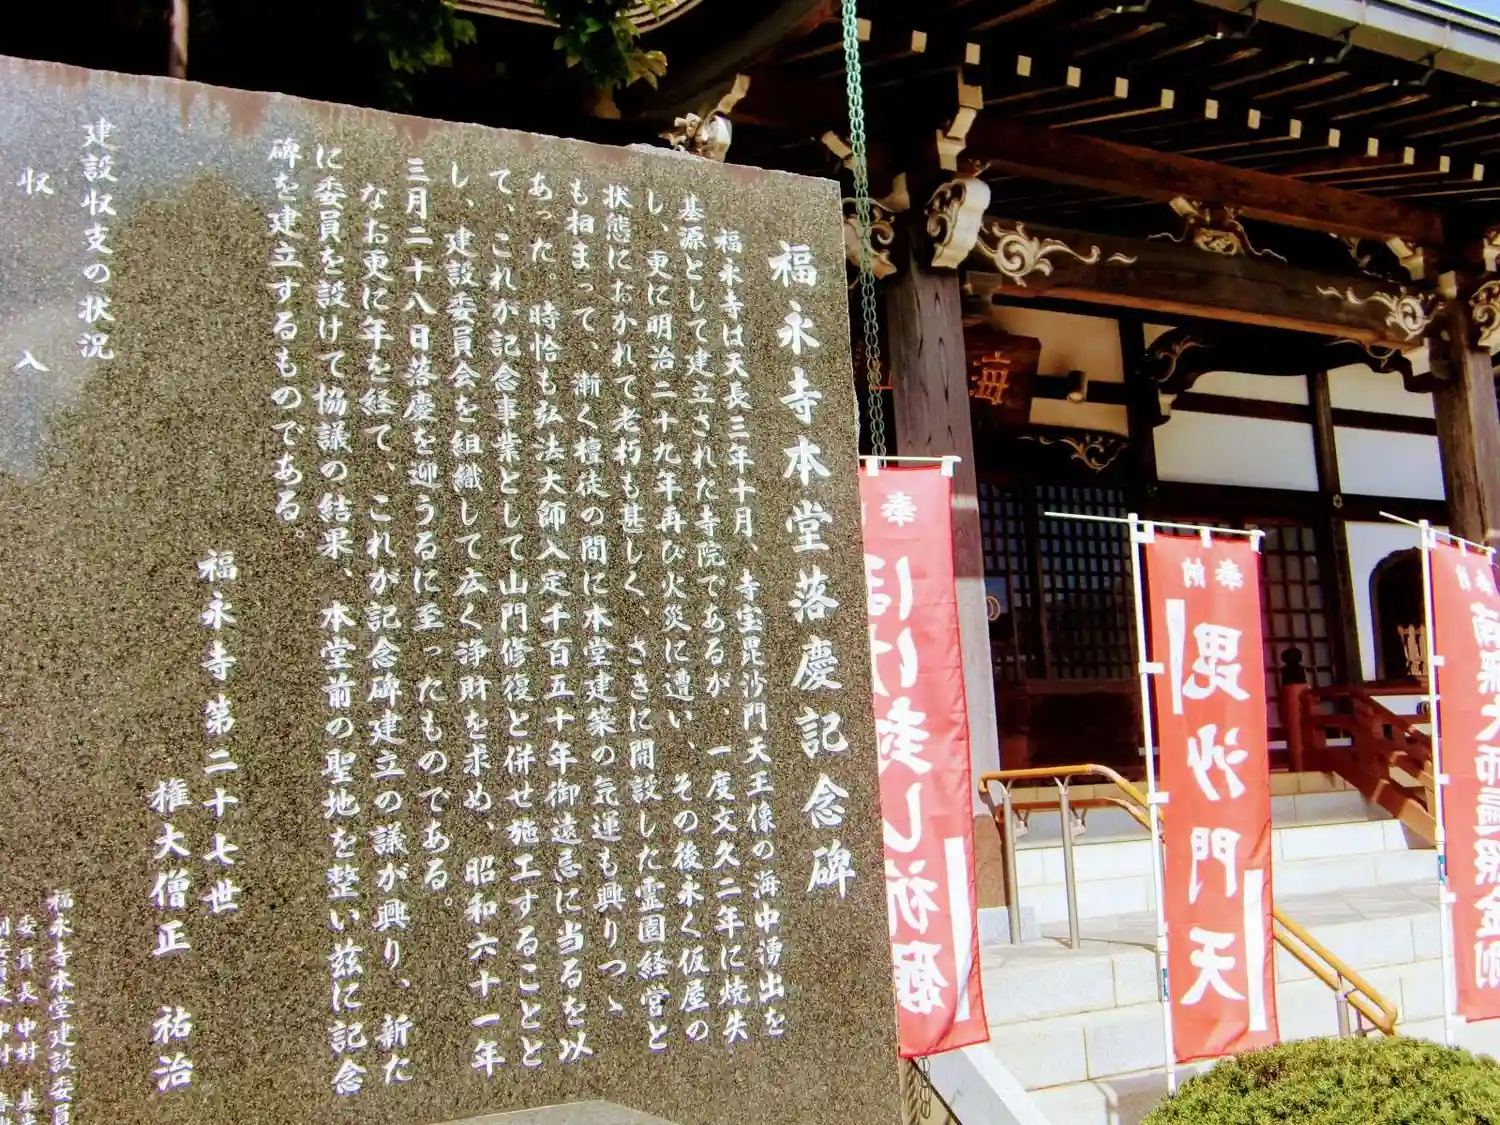 福永寺本堂落慶記念碑
福永寺は天長三年十月、寺宝毘沙門天王像の海中湧出を
基源として建立された寺院であるが、一度文久二年に焼失
し、更に明治二十九年再び火災に遭い、その後永く仮屋の
状態におかれて老朽も甚しく、さきに開設した霊園経営と
も相まって、漸く檀徒の間に本堂建築の気運も興りつゝ
あった。時恰も弘法大師入定千百五十年御遠忌に当るを以
て、これか記念事業として山門修復と併せ施工することと
し、建設委員会を組織して広く浄財を求め、昭和六十一年
三月二十八日落慶を迎うるに至ったものである。
なお更に年を経て、これが記念碑建立の議が興り、新た
に委員を設けて協議の結果、本堂前の聖地を整い茲に記念
碑を建立するものである。
福永寺第二十七世
権大僧正 祐治
建設収支の状況
収入
福永寺本堂建設委員
委員長 中村
奉
ぼけ封じ祈願
奉納
毘沙門天
南無大師遍照金剛
海